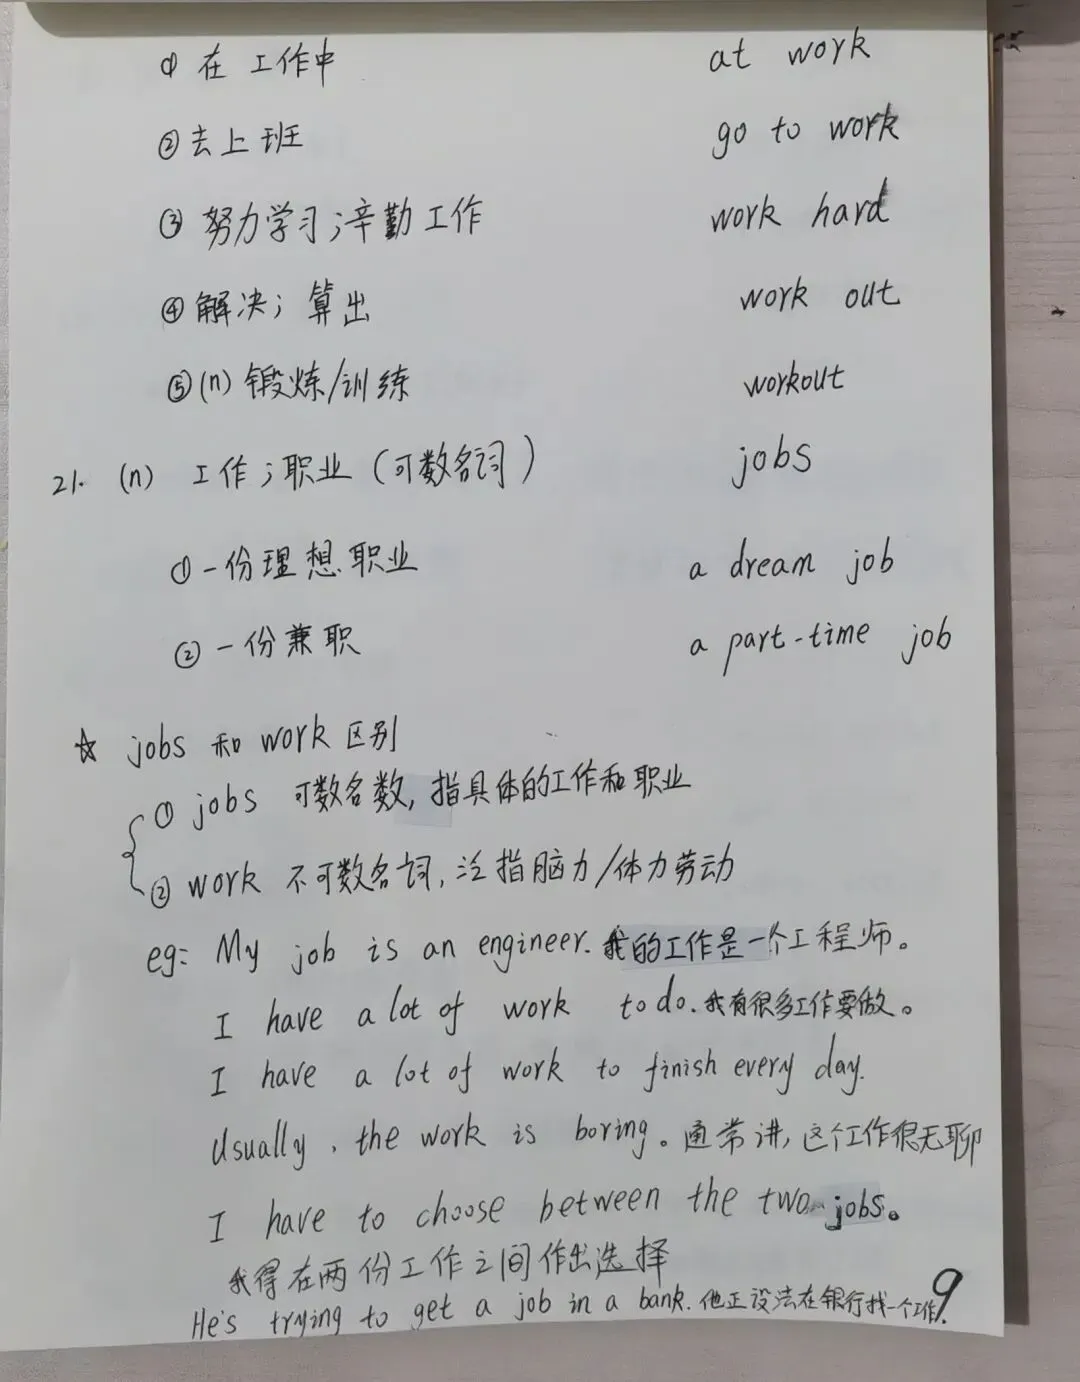 ① 在工作中 at work
② 去上班 go to work
③ 努力学习;辛勤工作 work hard
④ 解决;算出 work out
⑤ (n) 锻炼/训练 workout
21. (n) 工作;职业(可数名词) jobs
① 一份理想职业 a dream job
② 一份兼职 a part-time job
☆ jobs 和 work 区别
① jobs 可数名数,指具体的工作和职业
② work 不可数名词,泛指脑力/体力劳动
eg: My job is an engineer. 我的工作是一个工程师。
I have a lot of work to do. 我有很多工作要做。
I have a lot of work to finish every day.
Usually, the work is boring。通常讲,这个工作很无聊
I have to choose between the two jobs。
我得在两份工作之间作出选择
He's trying to get a job in a bank. 他正设法在银行找一个工作.
9